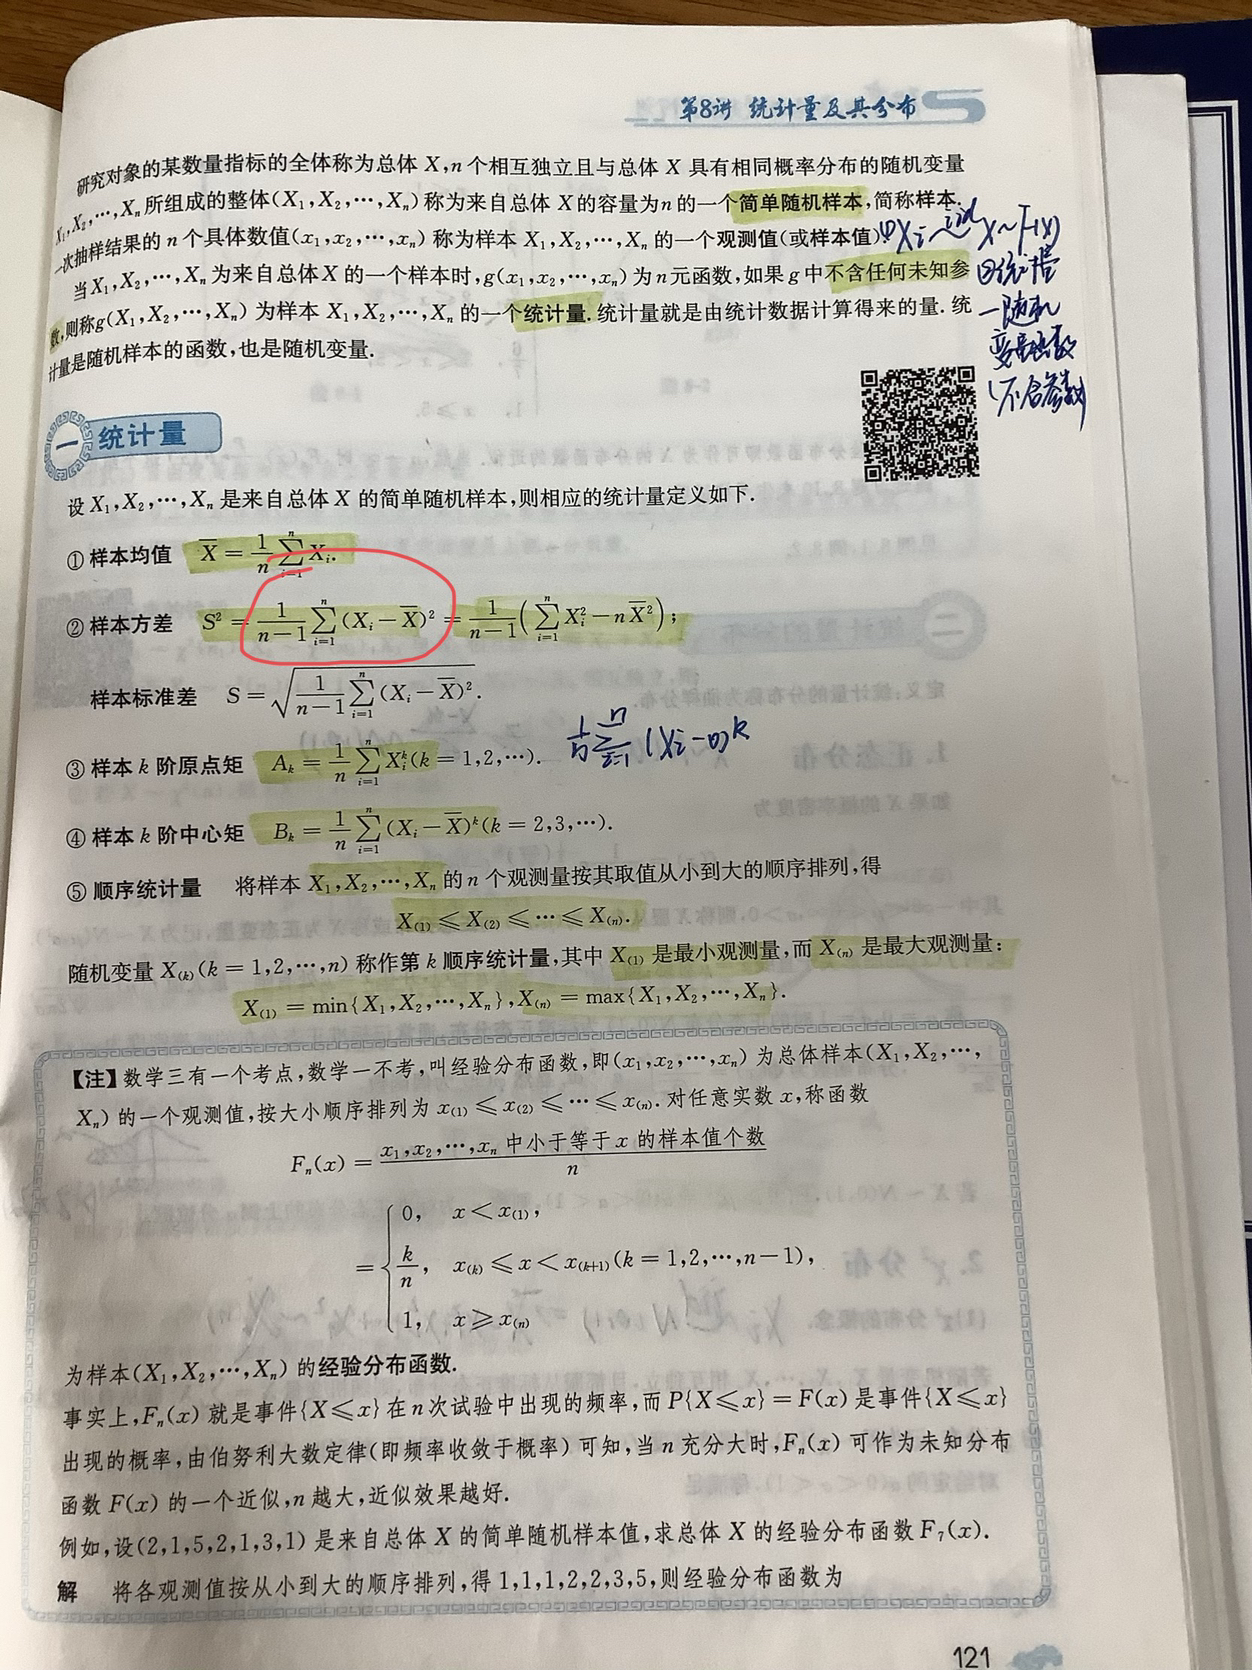 第8讲 统计量及其分布
研究对象的某数量指标的全体称为总体 X,n 个相互独立且与总体 X 具有相同概率分布的随机变量
X₁,X₂,⋯,Xₙ 所组成的整体(X₁,X₂,⋯,Xₙ) 称为来自总体 X 的容量为 n 的一个简单随机样本,简称样本.
一次抽样结果的 n 个具体数值(x₁,x₂,⋯,xₙ) 称为样本 X₁,X₂,⋯,Xₙ 的一个观测值(或样本值).
① Xi ~iid X~F(x)
当 X₁,X₂,⋯,Xₙ 为来自总体 X 的一个样本时,g(x₁,x₂,⋯,xₙ) 为 n 元函数,如果 g 中不含任何未知参
数,则称 g(X₁,X₂,⋯,Xₙ) 为样本 X₁,X₂,⋯,Xₙ 的一个统计量. 统计量就是由统计数据计算得来的量. 统
计量是随机样本的函数,也是随机变量.
一随机
(不含参数)
一 统计量
设 X₁,X₂,⋯,Xₙ 是来自总体 X 的简单随机样本,则相应的统计量定义如下.
① 样本均值 X̄ = 1/n ∑ᵢ₌₁ⁿ Xᵢ.
② 样本方差 S² = 1/(n−1) ∑ᵢ₌₁ⁿ (Xᵢ − X̄)² = 1/(n−1) (∑ᵢ₌₁ⁿ Xᵢ² − nX̄²);
样本标准差 S = √(1/(n−1) ∑ᵢ₌₁ⁿ (Xᵢ − X̄)²).
③ 样本 k 阶原点矩 Aₖ = 1/n ∑ᵢ₌₁ⁿ Xᵢᵏ (k = 1,2,⋯). 1/n ∑ᵢ₌₁ⁿ (Xi−0)ᵏ
④ 样本 k 阶中心矩 Bₖ = 1/n ∑ᵢ₌₁ⁿ (Xᵢ − X̄)ᵏ (k = 2,3,⋯).
⑤ 顺序统计量 将样本 X₁,X₂,⋯,Xₙ 的 n 个观测量按其取值从小到大的顺序排列,得
X₍₁₎ ≤ X₍₂₎ ≤ ⋯ ≤ X₍ₙ₎.
随机变量 X₍ₖ₎ (k = 1,2,⋯,n) 称作第 k 顺序统计量,其中 X₍₁₎ 是最小观测量,而 X₍ₙ₎ 是最大观测量:
X₍₁₎ = min{X₁,X₂,⋯,Xₙ},X₍ₙ₎ = max{X₁,X₂,⋯,Xₙ}.
【注】数学三有一个考点,数学一不考,叫经验分布函数,即(x₁,x₂,⋯,xₙ) 为总体样本(X₁,X₂,⋯,
Xₙ) 的一个观测值,按大小顺序排列为 x₍₁₎ ≤ x₍₂₎ ≤ ⋯ ≤ x₍ₙ₎. 对任意实数 x,称函数
Fₙ(x) = x₁,x₂,⋯,xₙ 中小于等于 x 的样本值个数 / n
= { 0, x < x₍₁₎,
k/n, x₍ₖ₎ ≤ x < x₍ₖ₊₁₎ (k = 1,2,⋯,n−1),
1, x ≥ x₍ₙ₎
为样本(X₁,X₂,⋯,Xₙ) 的经验分布函数.
事实上,Fₙ(x) 就是事件{X ≤ x} 在 n 次试验中出现的频率,而 P{X ≤ x} = F(x) 是事件{X ≤ x}
出现的概率,由伯努利大数定律(即频率收敛于概率) 可知,当 n 充分大时,Fₙ(x) 可作为未知分布
函数 F(x) 的一个近似,n 越大,近似效果越好.
例如,设(2,1,5,2,1,3,1) 是来自总体 X 的简单随机样本值,求总体 X 的经验分布函数 F₇(x).
解 将各观测值按从小到大的顺序排列,得 1,1,1,2,2,3,5,则经验分布函数为
121